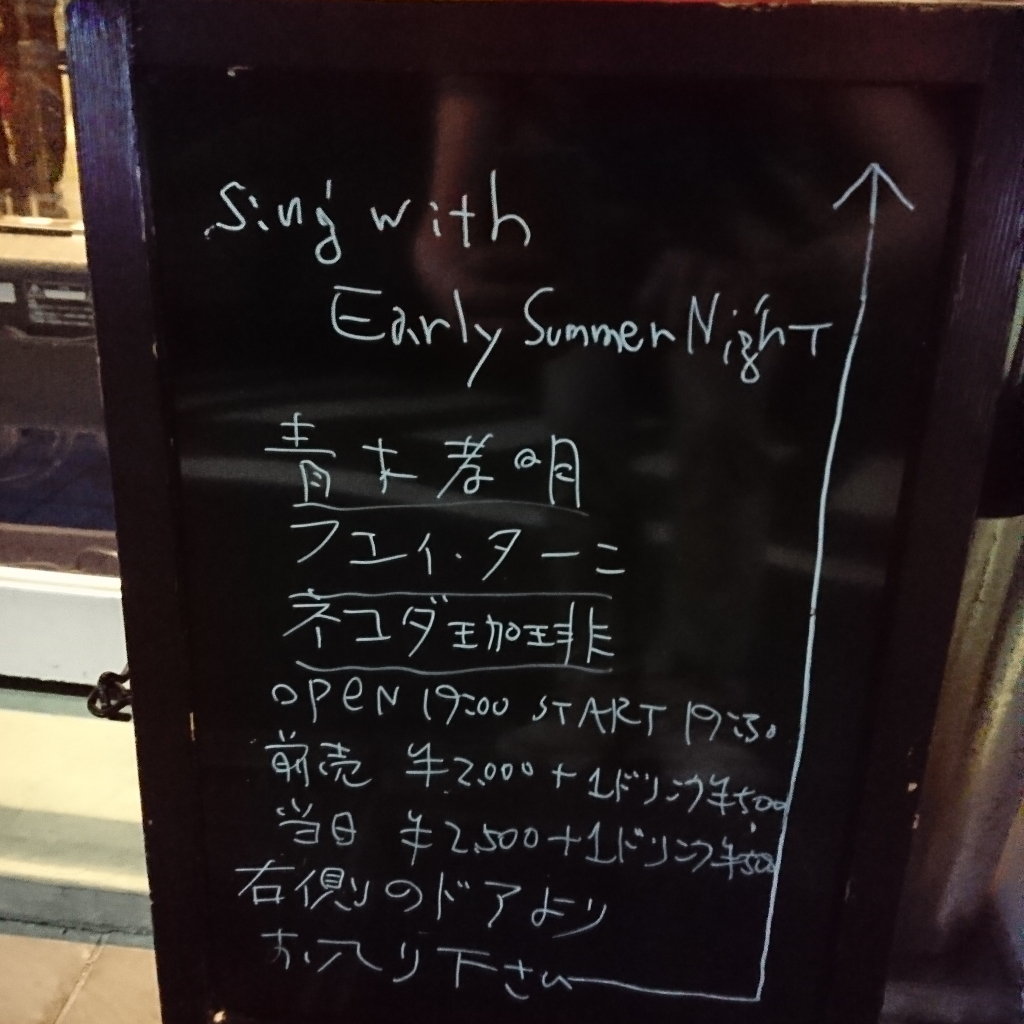 Sing with
Early Summer Night
青木孝明
フエイ・ターニ
ネコダ珈琲
OPEN 19:00 START 19:30
前売 ¥2.000+1ドリンク¥500
当日 ¥2.500+1ドリンク¥500
右側のドアより
お入り下さい